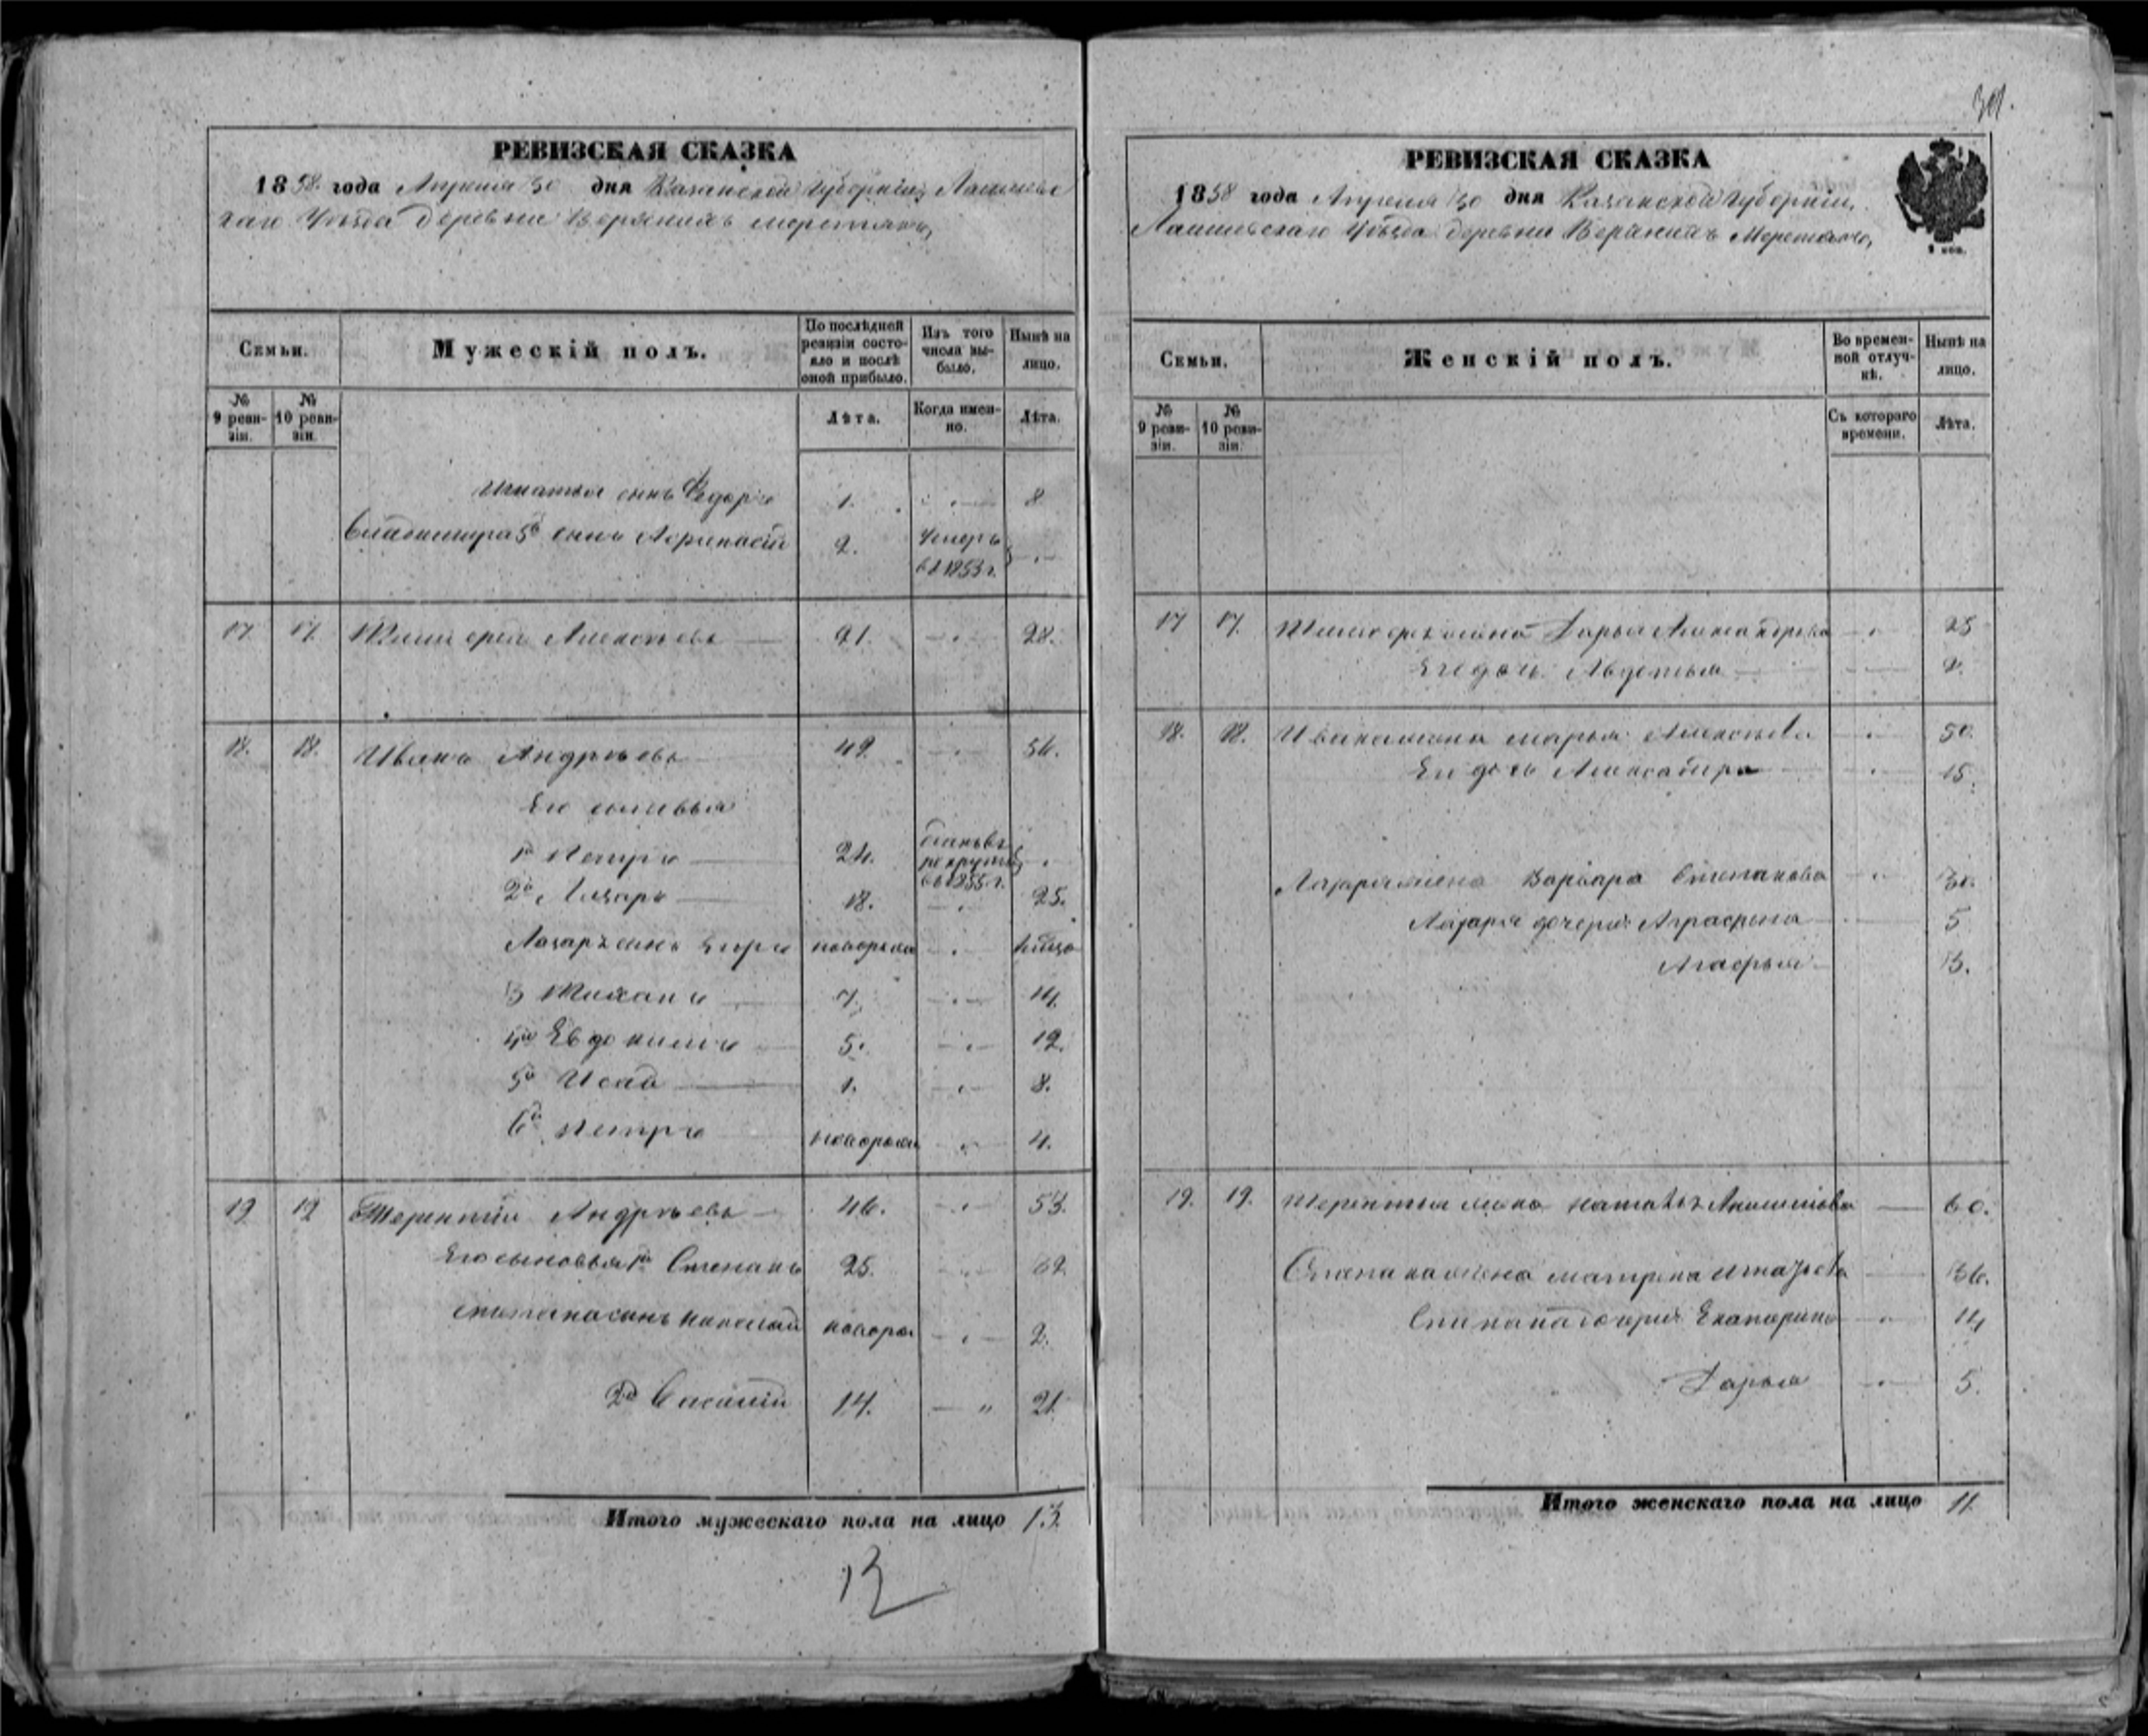 301.
РЕВИЗСКАЯ СКАЗКА
1858 года Апреля 30 дня Казанской Губерніи, Лаишевс
каго Уѣзда деревни Верхнихъ меретяко,
Семьи.
Мужескій полъ.
По послѣдней ревизіи состояло и послѣ оной прибыло.
Изъ того числа выбыло.
Нынѣ на лицо.
№ 9 ревизіи.
№ 10 ревизіи.
Лѣта.
Когда именно.
Лѣта.
Игнатья сынъ Федоръ 1. 8
Владимира 5й сынъ Афанасій 2. умеръ въ 1853 г.
17 17. Тимофей Алексѣевъ 21. 28.
18. 18. Иванъ Андрѣевъ 49. 56.
Его сыновья
1й Петръ 24. въ 1855 г.
2й Лазарь 18. 25.
Лазаря сынъ новорож
3 7. 14.
4й Евдокимъ 5. 12.
5й Исай 1. 8.
6й Петръ новорож 4.
19 19 Терентий Андрѣевъ 46. 53.
Его сыновья 1й Степанъ 25. 32
Степана сынъ Николай новорож 2.
2й 14. 21.
Итого мужескаго пола на лицо 13
13
РЕВИЗСКАЯ СКАЗКА
1858 года Апреля 30 дня Казанской Губерніи,
Лаишевскаго Уѣзда деревни Верхнихъ Меретяко,
Семьи.
Женскій полъ.
Во временной отлучкѣ.
Нынѣ на лицо.
№ 9 ревизіи.
№ 10 ревизіи.
Съ котораго времени.
Лѣта.
17 17. Тимофея жена Дарья Александрова 25
Его дочь Авдотья 2.
18. 18. Ивана жена Марья Алексѣева 50.
Его дочь Александра 15.
Лазаря жена Варвара Степанова 30.
Лазаря дочери Аграфена 5
Агафья 3.
19. 19. Терентья жена 60.
Степана жена матрена Игнатьева 36.
Степана дочери Екатерина 14
Дарья 5.
Итого женскаго пола на лицо 11.